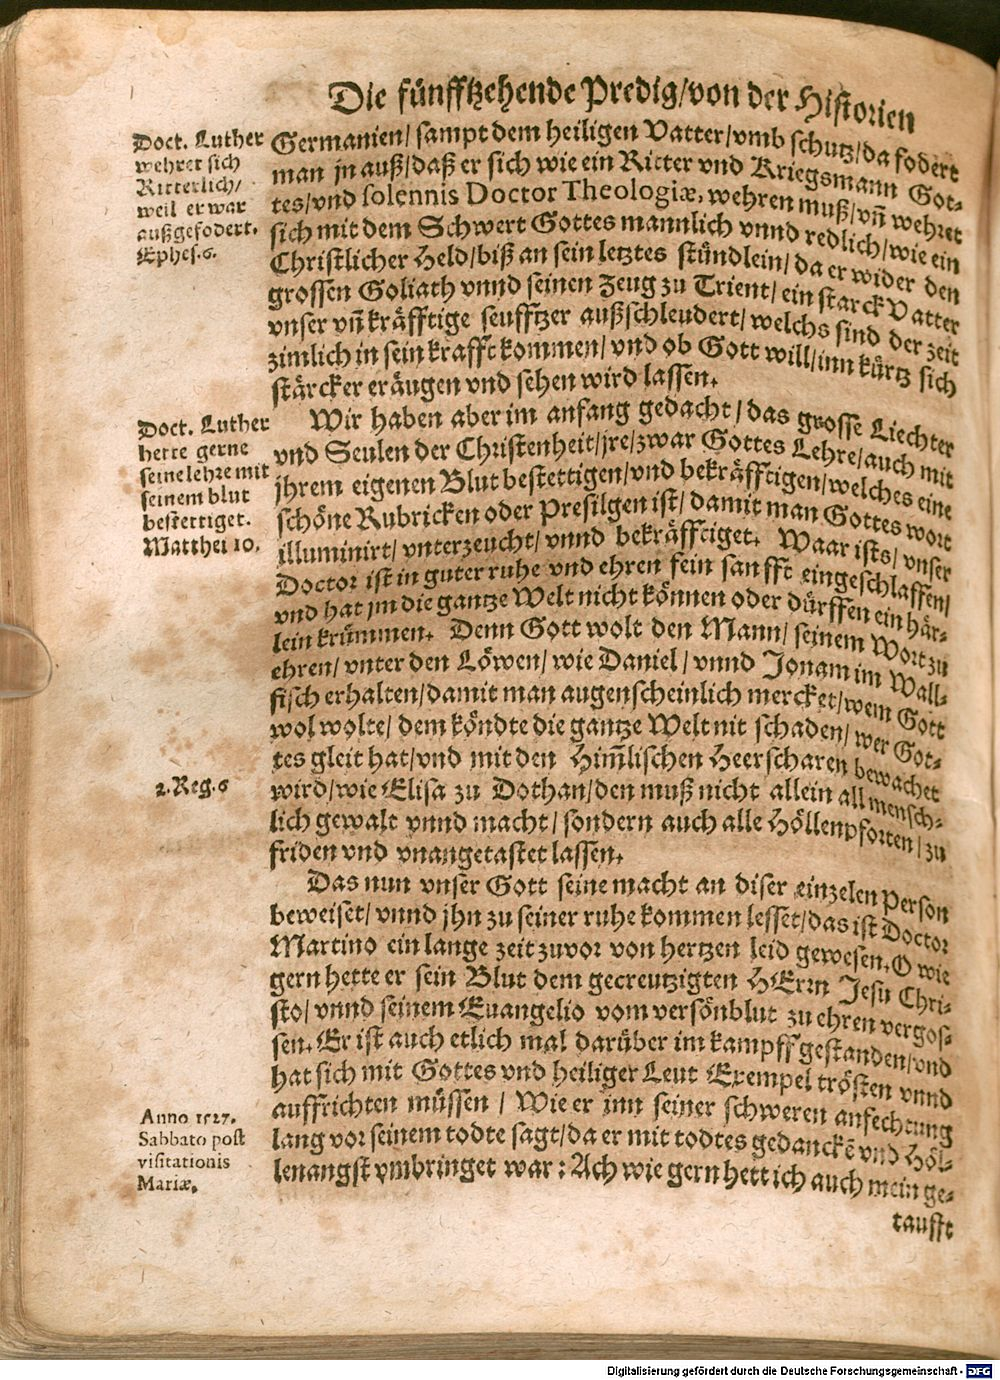 Die fünfftzehende Predig/von der Historien
Doct. Luther
wehret sich
Ritterlich/
weil er war
außgefodert.
Ephes.6.
Germanien/ sampt dem heiligen Vatter/vmb schutz/da fodert
man jn auß/daß er sich wie ein Ritter vnd Kriegsmann Got-
tes/vnd solennis Doctor Theologiæ, wehren muß/vn̄ wehret
sich mit dem Schwert Gottes mannlich vnnd redlich/wie ein
Christlicher Held/biß an sein letztes stündlein/da er wider den
grossen Goliath vnnd seinen Zeug zu Trient/ein starck Vatter
vnser vn̄ kräfftige seufftzer außschleudert/welchs sind der zeit
zimlich in sein krafft kommen/vnd ob Gott will/inn kürtz sich
stärcker eräugen vnd sehen wird lassen.
Doct. Luther
hette gerne
seine lehre mit
seinem blut
bestettiget.
Matthei 10.
Wir haben aber im anfang gedacht/das grosse Liechter
vnd Seulen der Christenheit/jre/zwar Gottes Lehre/auch mit
jhrem eigenen Blut bestettigen/vnd bekräfftigen/welches eine
schöne Rubricken oder Presilgen ist/damit man Gottes wort
illuminirt/vnterzeucht/vnnd bekräfftiget. Waar ists/vnser
Doctor ist in guter ruhe vnd ehren fein sanfft eingeschlaffen/
vnd hat jm die gantze Welt nicht können oder dürffen ein här-
lein krümmen. Denn Gott wolt den Mann/seinem Wort zu
ehren/vnter den Löwen/wie Daniel/vnnd Jonam im Wall-
fisch erhalten/damit man augenscheinlich mercket/wem Gott
wol wolte/dem köndte die gantze Welt nit schaden/wer Got-
tes gleit hat/vnd mit den Him̄lischen Heerscharen bewachet
2.Reg.6
wird/wie Elisa zu Dothan/den muß nicht allein all mensch-
lich gewalt vnnd macht/sondern auch alle Höllenpforten/zu
friden vnd vnangetastet lassen.
Das nun vnser Gott seine macht an diser einzelen Person
beweiset/vnnd jhn zu seiner ruhe kommen lesset/das ist Doctor
Martino ein lange zeit zuvor von hertzen leid gewesen. O wie
gern hette er sein Blut dem gecreutzigten HErrn Jesu Chri-
sto/vnnd seinem Euangelio vom versönblut zu ehren vergos-
sen. Er ist auch etlich mal darüber im kampff gestanden/vnd
hat sich mit Gottes vnd heiliger Leut Exempel trösten vnnd
Anno 1527.
Sabbato post
visitationis
Mariæ.
auffrichten müssen/Wie er inn seiner schweren anfechtung
lang vor seinem todte sagt/da er mit todtes gedanckē vnd Höl-
lenangst vmbringet war: Ach wie gern hett ich auch mein ge-
taufft
Digitalisierung gefördert durch die Deutsche Forschungsgemeinschaft - DFG